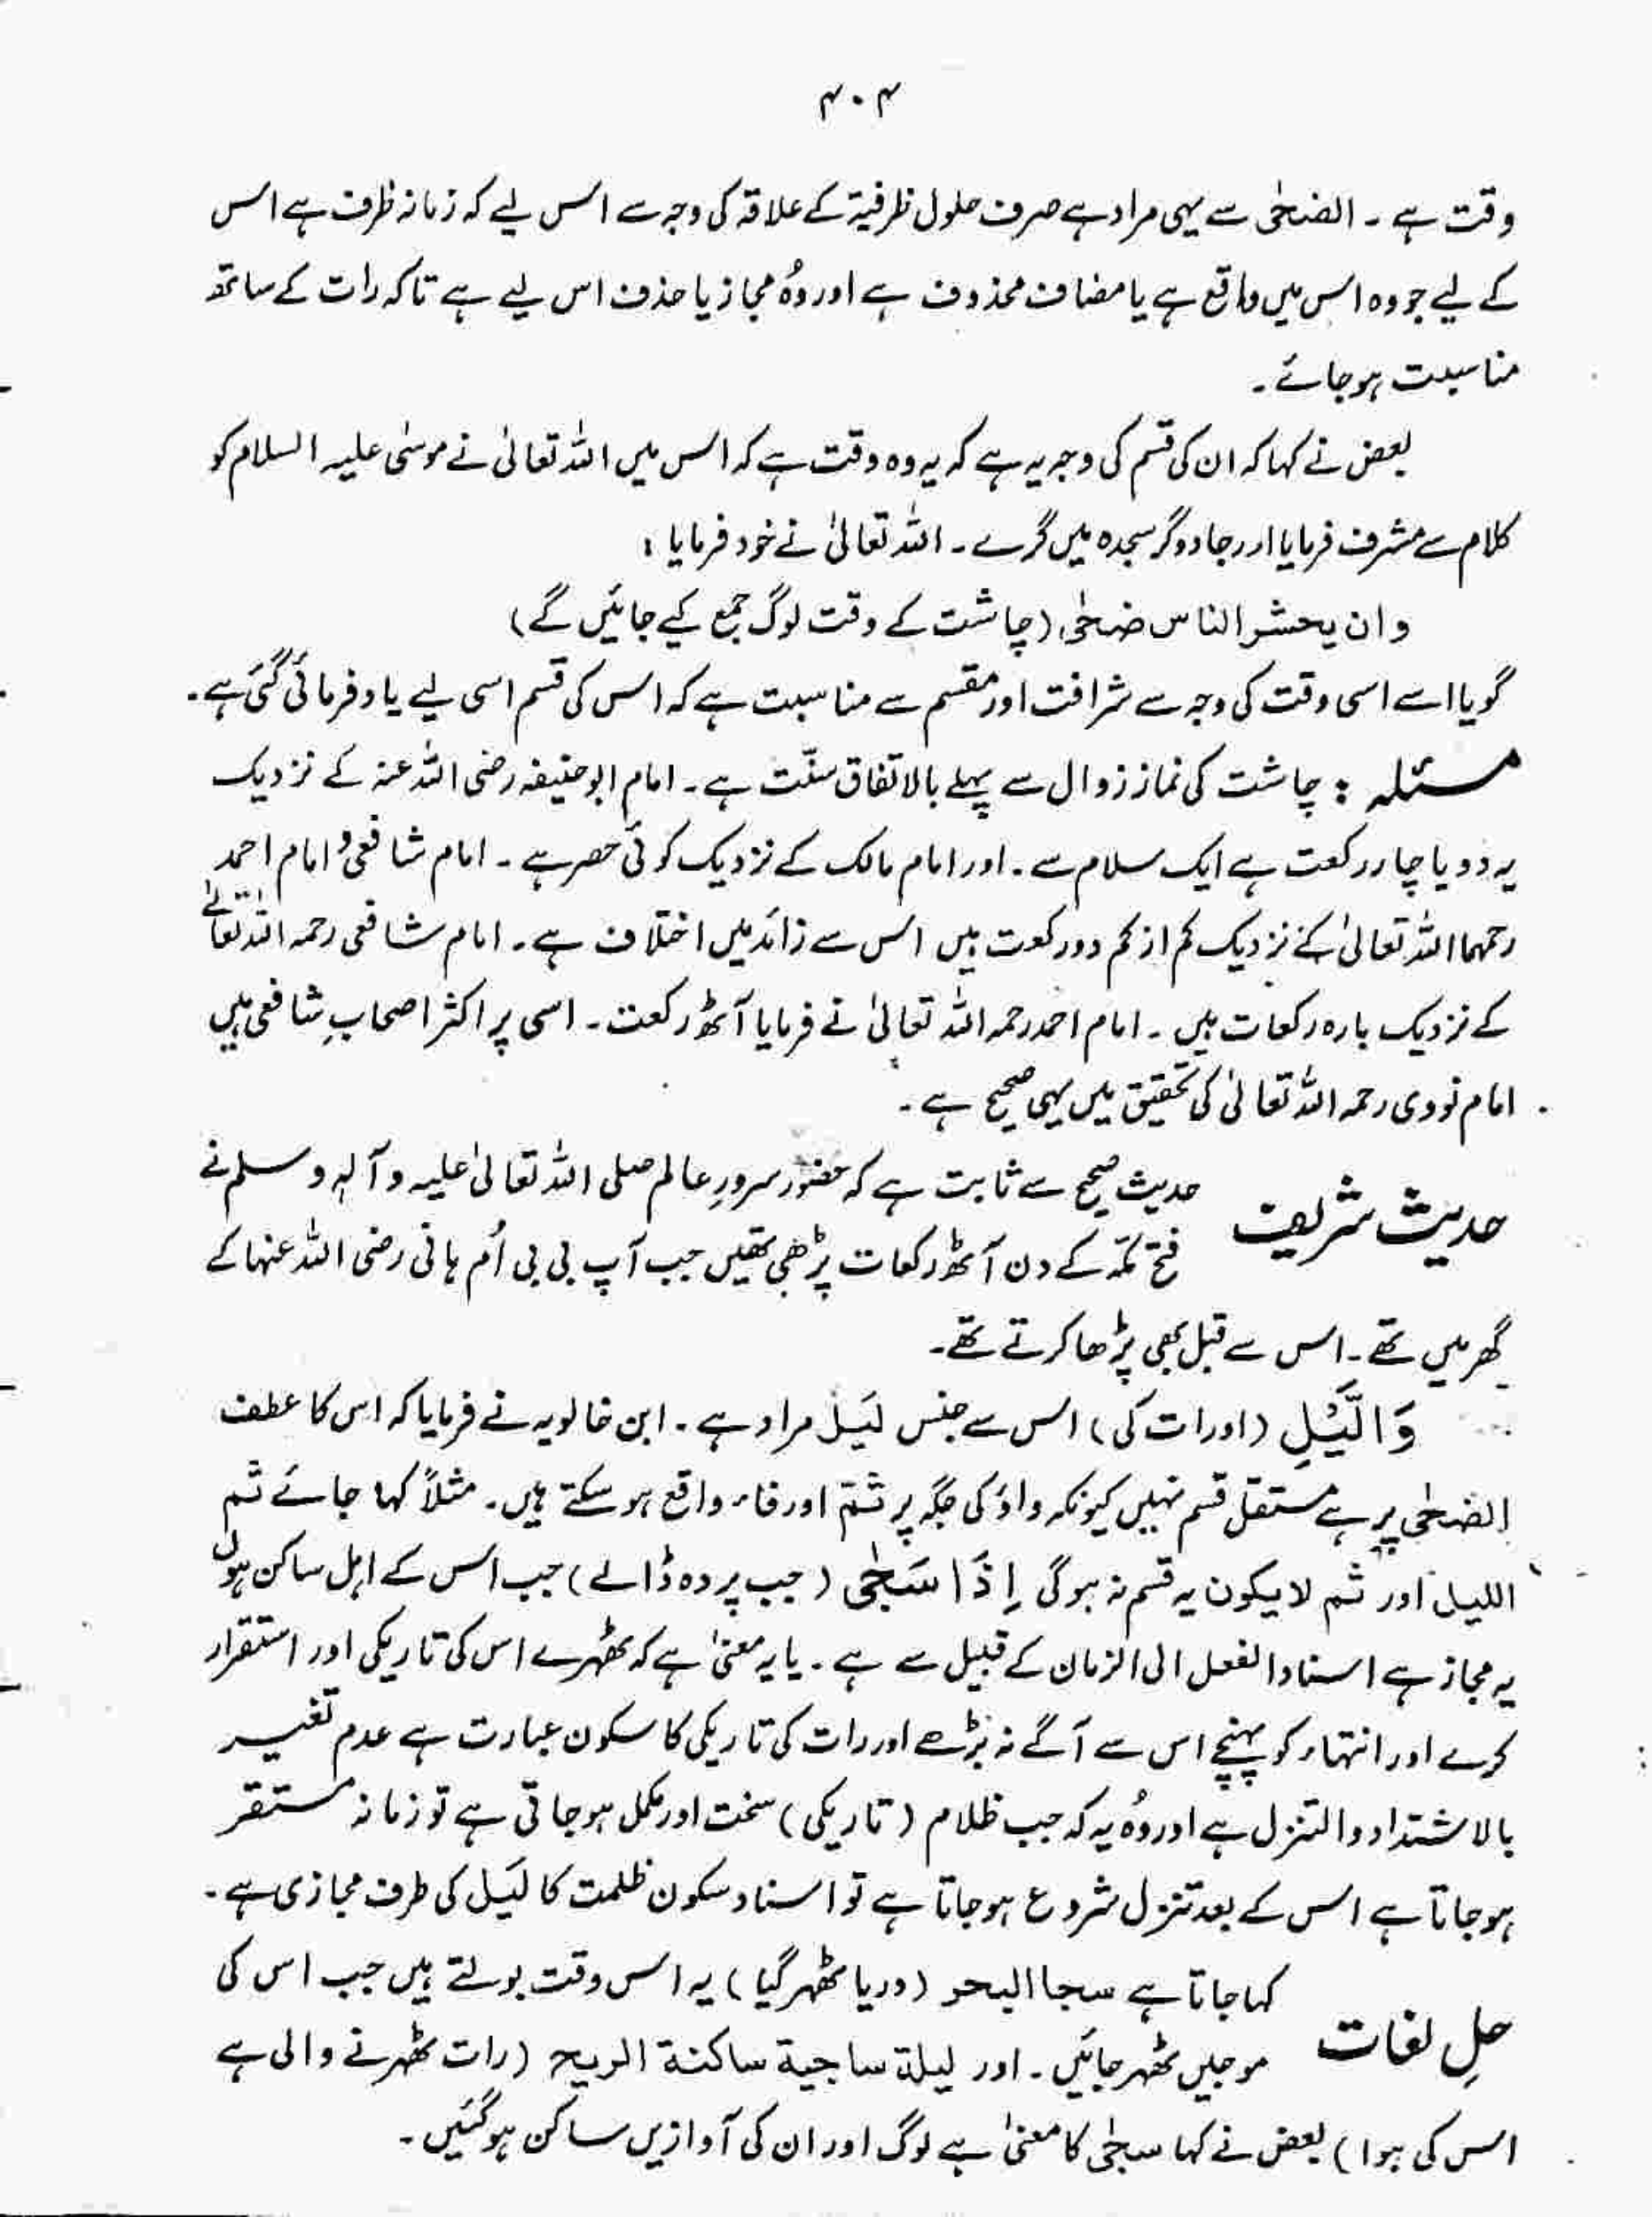 ۴۰۴
وقت ہے ۔ الضحٰی سے یہی مراد ہے صرف حلول ظرفیۃ کے علاقہ کی وجہ سے اس لیے کہ زمانہ ظرف ہے اس
کے لیے جو وہ اس میں واقع ہے یا مضاف محذوف ہے اور وُہ مجاز یا حذف اس لیے ہے تاکہ رات کے ساتھ
مناسبت ہو جائے ۔
بعض نے کہا کہ ان کی قسم کی وجہ یہ ہے کہ یہ وہ وقت ہے کہ اس میں اللہ تعالیٰ نے موسٰی علیہ السلام کو
کلام سے مشرف فرمایا اور جادوگر سجدہ میں گرے ۔ اللہ تعالیٰ نے خود فرمایا :
وان یحشر الناس ضحٰی (چاشت کے وقت لوگ جمع کیے جائیں گے)
گویا اسے اسی وقت کی وجہ سے شرافت اور مقسم سے مناسبت ہے کہ اس کی قسم اسی لیے یاد فرمائی گئی ہے ۔
مسئلہ : چاشت کی نماز زوال سے پہلے بالاتفاق سنّت ہے ۔ امام ابوحنیفہ رضی اللہ عنہ کے نزدیک
یہ دو یا چار رکعت ہے ایک سلام سے ۔ اور امام مالک کے نزدیک کوئی حصر ہے ۔ امام شافعی و امام احمد
رحمہما اللہ تعالیٰ کے نزدیک کم از کم دو رکعت ہیں اس سے زائد میں اختلاف ہے ۔ امام شافعی رحمہ اللہ تعالےٰ
کے نزدیک بارہ رکعات ہیں ۔ امام احمد رحمہ اللہ تعالیٰ نے فرمایا آٹھ رکعت ۔ اسی پر اکثر اصحابِ شافعی ہیں
امام نووی رحمہ اللہ تعالیٰ کی تحقیق میں یہی صحیح ہے ۔
حدیث شریف حدیث صحیح سے ثابت ہے کہ حضور سرورِ عالم صلی اللہ تعالیٰ علیہ وآلہٖ وسلم نے
فتح مکّہ کے دن آٹھ رکعات پڑھی تھیں جب آپ بی بی اُم ہانی رضی اللہ عنہا کے
گھر میں تھے ۔ اس سے قبل بھی پڑھا کرتے تھے ۔
وَالَّیْلِ (اور رات کی) اس سے جنس لَیَل مراد ہے ۔ ابن خالویہ نے فرمایا کہ اس کا عطف
الضحٰی پر ہے مستقل قسم نہیں کیونکہ واؤ کی جگہ پر ثمّ اور فاء واقع ہو سکتے ہیں ۔ مثلاً کہا جائے ثم
اللیل اور ثم لا یکون یہ قسم نہ ہوگی اِذَا سَجٰی (جب پردہ ڈالے) جب اس کے اہل ساکن ہوں
یہ مجاز ہے اسناد الفعل الی الزمان کے قبیل سے ہے ۔ یا یہ معنیٰ ہے کہ ٹھہرے اس کی تاریکی اور استقرار
کرے اور انتہاء کو پہنچے اس سے آگے نہ بڑھے اور رات کی تاریکی کا سکون عبارت ہے عدم تغیر
بالاشتداد والتنزل ہے اور وُہ یہ کہ جب ظلام (تاریکی) سخت اور مکمل ہو جاتی ہے تو زمانہ مستقر
ہو جاتا ہے اس کے بعد تنزل شروع ہو جاتا ہے تو اسناد سکون ظلمت کا لَیَل کی طرف مجازی ہے ۔
حلِ لغات کہا جاتا ہے سجا البحر (دریا ٹھہر گیا) یہ اس وقت بولتے ہیں جب اس کی
موجیں ٹھہر جائیں ۔ اور لیلۃ ساجیۃ ساکنۃ الریح (رات ٹھہرنے والی ہے
اس کی ہوا) بعض نے کہا سجٰی کا معنیٰ ہے لوگ اور ان کی آوازیں ساکن ہوگئیں ۔